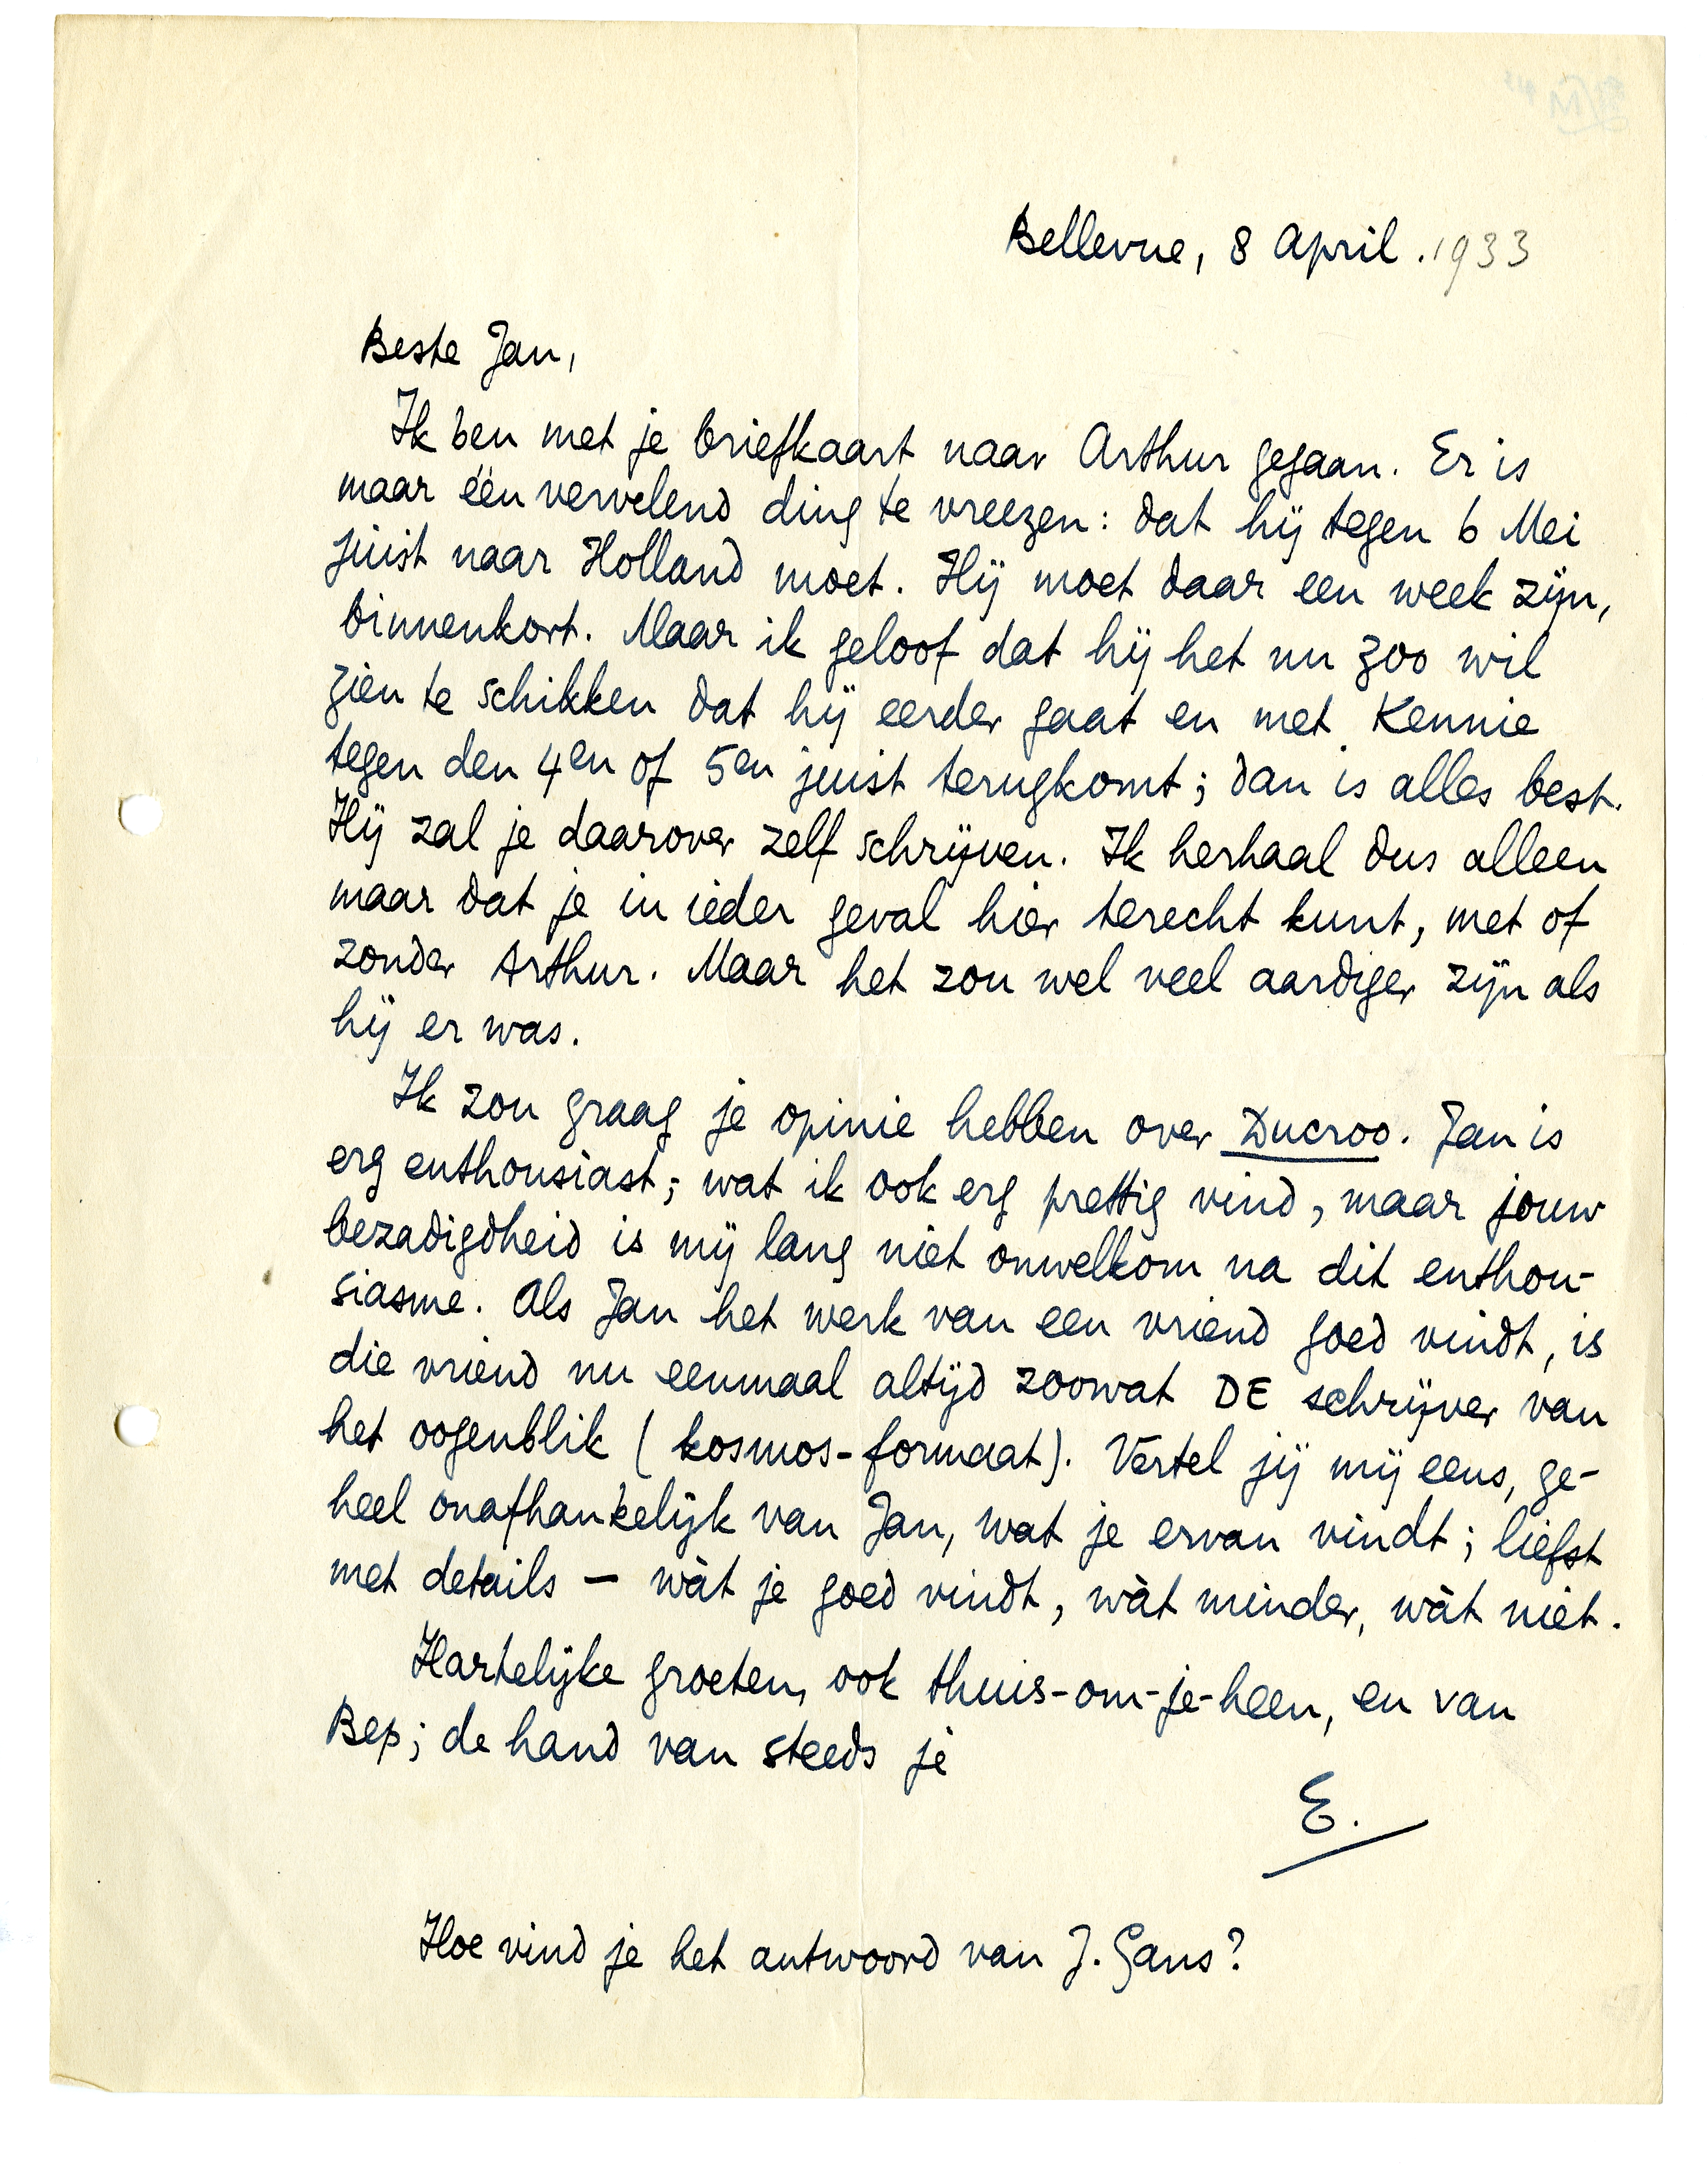 Bellevue, 8 April. 1933
Beste Jan,
Ik ben met je briefkaart naar Arthur gegaan. Er is
maar één vervelend ding te vreezen: dat hij tegen 6 Mei
juist naar Holland moet. Hij moet daar een week zijn,
binnenkort. Maar ik geloof dat hij het nu zoo wil
zien te schikken dat hij eerder gaat en met Kennie
tegen den 4en of 5en juist terugkomt; dan is alles best.
Hij zal je daarover zelf schrijven. Ik herhaal dus alleen
maar dat je in ieder geval hier terecht kunt, met of
zonder Arthur. Maar het zou wel veel aardiger zijn als
hij er was.
Ik zou graag je opinie hebben over Ducroo. Jan is
erg enthousiast; wat ik ook erg prettig vind, maar jouw
bezadigdheid is mij lang niet onwelkom na dit enthou-
siasme. Als Jan het werk van een vriend goed vindt, is
die vriend nu eenmaal altijd zoowat DE schrijver van
het oogenblik (kosmos-formaat). Vertel jij mij eens, ge-
heel onafhankelijk van Jan, wat je ervan vindt; liefst
met details — wàt je goed vindt, wàt minder, wàt niet.
Hartelijke groeten, ook thuis-om-je-heen, en van
Bep; de hand van steeds je
E.
Hoe vind je het antwoord van J. Gans?